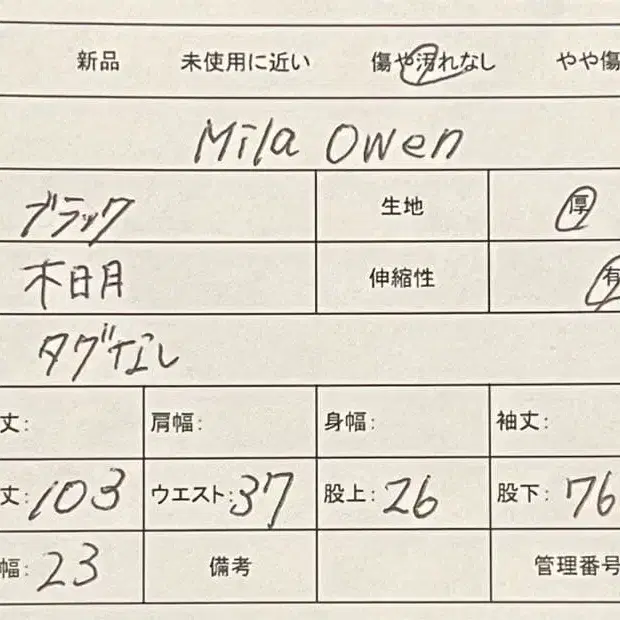 新品 未使用に近い 傷や汚れなし やや傷
Mila Owen
ブラック 生地 厚
木日月 伸縮性 有
タグなし
丈: 肩幅: 身幅: 袖丈:
丈:103 ウエスト:37 股上:26 股下:76
幅:23 備考 管理番号